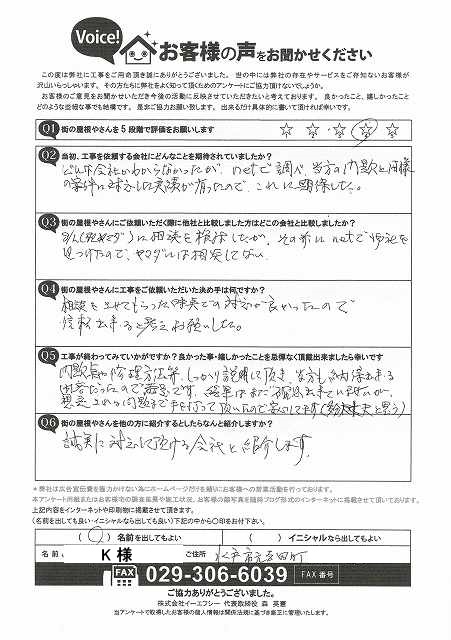 Voice!
お客様の声をお聞かせください
この度は弊社に工事をご用命頂き誠にありがとうございました。世の中には弊社の存在やサービスをご存知ないお客様が
沢山いらっしゃいます。その方たちに弊社をよく知って頂くためのアンケートにご協力頂けないでしょうか。
お客様のご意見をお聞かせいただき今後の活動に反映させていただきたいと考えております。良かったこと、嬉しかったこと
どのような些細な事でも結構です。是非ご協力お願い致します。出来るだけ具体的に書いて頂ければ幸いです。
Q1 街の屋根やさんを5段階で評価をお願いします ☆ ・ ☆ ・ ☆ ・ ☆ ・ ☆
Q2 当初、工事を依頼する会社にどんなことを期待されていましたか?
どんな会社かわからなかったが、netで調べ、当方の問題と同様
の案件に対応した実績が有ったので、これに期待した。
Q3 街の屋根やさんにご依頼いただく際に他社と比較しました方はどこの会社と比較しましたか?
に相談を検討したが、その前にnetで御社を
見つけたので、ヤマダには相談してない。
Q4 街の屋根やさんに工事をご依頼いただいた決め手は何ですか?
相談をさせてもらった時点での対応が良かったので
信頼出来ると考えお願いした。
Q5 工事が終わってみていかがですか?良かった事・嬉しかったことを忌憚なく頂戴出来ましたら幸いです
問題点や修理方法等、しっかり説明して頂き、当方も納得出来る
内容だったので満足です。結果はまだ確認出来ていませんが、
想定される問題まで手を打って頂いたので安心してます(多分大丈夫と思う)
Q6 街の屋根やさんを他の方に紹介するとしたらなんと紹介しますか?
誠実に対応して頂ける会社と紹介します。
*弊社は広告宣伝費を極力かけない為にホームページだけを頼りにお客様への営業活動を行っております。
本アンケート用紙またはお客様宅の調査風景や施工状況、お客様の顔写真を随時ブログ形式のインターネットに掲載させて頂いております。
上記内容をインターネットや印刷物に掲載させて頂きます。
(名前を出しても良い・イニシャルなら出しても良い)下記の中から〇印をお付け下さい。
( 〇 )名前を出してもよい ( )イニシャルなら出してもよい
名前 K 様 ご住所 水戸市元吉田町
FAX 029-306-6039 FAX 番号
ご協力ありがとうございました。
株式会社イーエフシー 代表取締役 森 英憲
当アンケートで取得したお客様の個人情報は関係法規に基づき厳正に管理いたします。